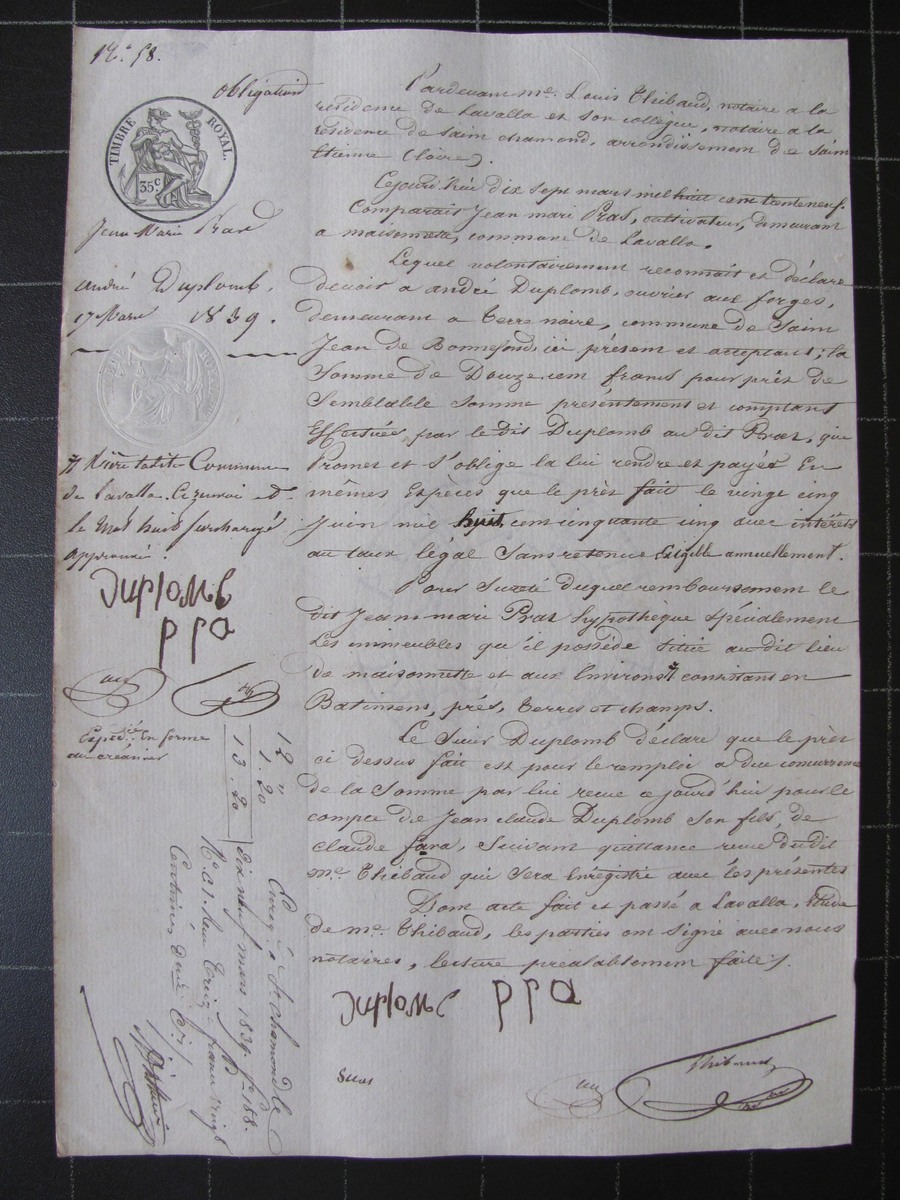 N.° 58.
obligation
TIMBRE ROYAL.
35 c
Jean Marie Pras
à
andré Duplomb.
17 Mars 1839.
Pardevant me. Louis Thibaud, notaire a la
résidence de Lavalla et son collègue, notaire a la
résidence de Saint chamond, arrondissement de Saint
Etienne (Loire).
Cejourd'hui dix sept mars mil huit cent trenteneuf.
Comparait Jean mari Pras, cultivateur, demeurant
a maisonnette, commune de Lavalla.
Lequel volontairement reconnait et déclare
devoir a andré Duplomb, ouvrier aux forges,
demeurant a terre noire, commune de Saint
Jean de Bonnefond, ici présent et acceptant; la
Somme de Douze cent francs pour prêt de
Semblable Somme présentement et comptant
Effectuée par le dit Duplomb au dit Pras, que
Promet et s'oblige la lui rendre et payer En
mêmes Espèces que le prêt fait le vingt cinq
Juin mil huit cent cinquante cinq avec intérêts
au taux légal Sans retenue Exigible annuellement.
Pour Sureté duquel remboursement le
dit Jean mari Pras hypothèque Spécialement
Les immeubles qu'il possède Situé au dit lieu
de maisonnette et aux Environs consistant en
Batimens, prés, terres et champs.
Le Sieur Duplomb déclare que le prêt
ci dessus fait est pour le remploi a due concurrence
de la Somme par lui recue ce jourd'hui pour le
compte de Jean claude Duplomb Son fils, de
claude fara, Suivant quittance recue du dit
me. Thibaud qui Sera Enregistré avec les présentes
Dont acte fait et passé a Lavalla, Etude
de me. Thibaud, les parties ont Signé avec nous
notaires, lecture préalablement faites.
Duplomb
Pras
Thibaud
Commune
de Lavalla. Le renvoi et
le mot huit surchargé
approuvé.
Duplomb
Pras
Expédié En forme
au créancier
12 "
1. 20
13. 20
Enreg. à St chamond le
dix neuf mars 1839. fo 188.
R. a 1. Seu Treize francs vingt
Centimes, dixe C.